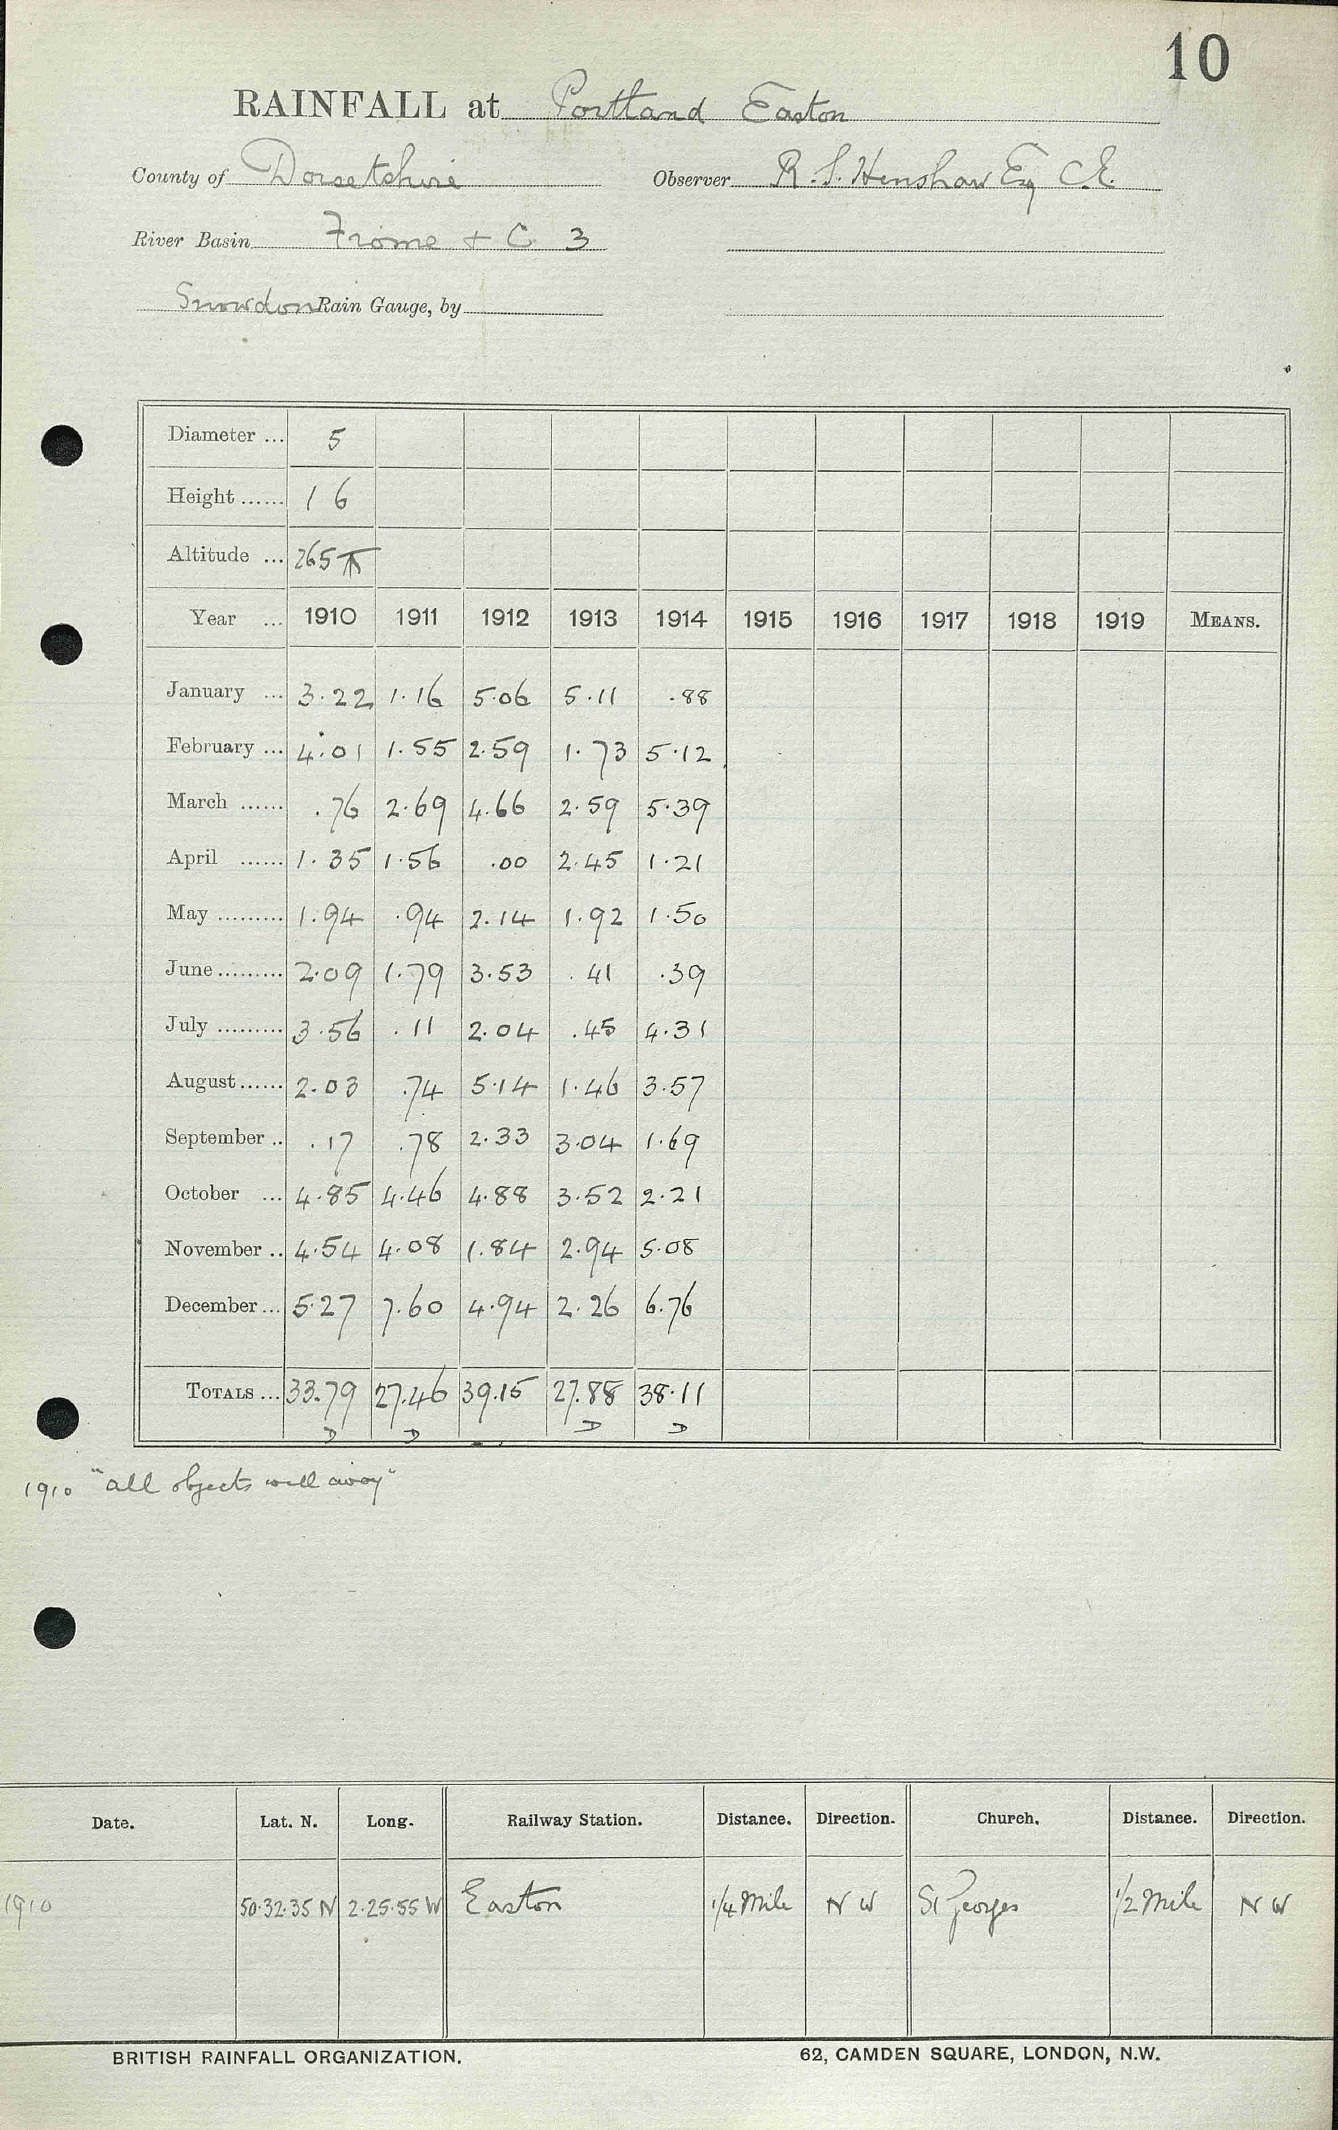 10
RAINFALL at Portland Easton
County of Dorsetshire Observer R. S. Henshaw Esq C.E.
River Basin Frome + C 3
Snowdon Rain Gauge, by
Diameter ... 5
Height ...... 1 6
Altitude ... 265
Year ... 1910 1911 1912 1913 1914 1915 1916 1917 1918 1919 MEANS.
January ... 3.22 1.16 5.06 5.11 .88
February ... 4.01 1.55 2.59 1.73 5.12
March ...... .76 2.69 4.66 2.59 5.39
April ...... 1.35 1.56 .00 2.45 1.21
May ......... 1.94 .94 2.14 1.92 1.50
June ......... 2.09 1.79 3.53 .41 .39
July ......... 3.56 .11 2.04 .45 4.31
August ...... 2.03 .74 5.14 1.46 3.57
September .. .17 .78 2.33 3.04 1.69
October ... 4.85 4.46 4.88 3.52 2.21
November .. 4.54 4.08 1.84 2.94 5.08
December ... 5.27 7.60 4.94 2.26 6.76
TOTALS ... 33.79 27.46 39.15 27.88 38.11
D D D D
1910 "all objects well away"
Date. Lat. N. Long. Railway Station. Distance. Direction. Church. Distance. Direction.
1910 50.32.35 N 2.25.55 W Easton 1/4 Mile N W St Georges 1/2 Mile N W
BRITISH RAINFALL ORGANIZATION. 62, CAMDEN SQUARE, LONDON, N.W.